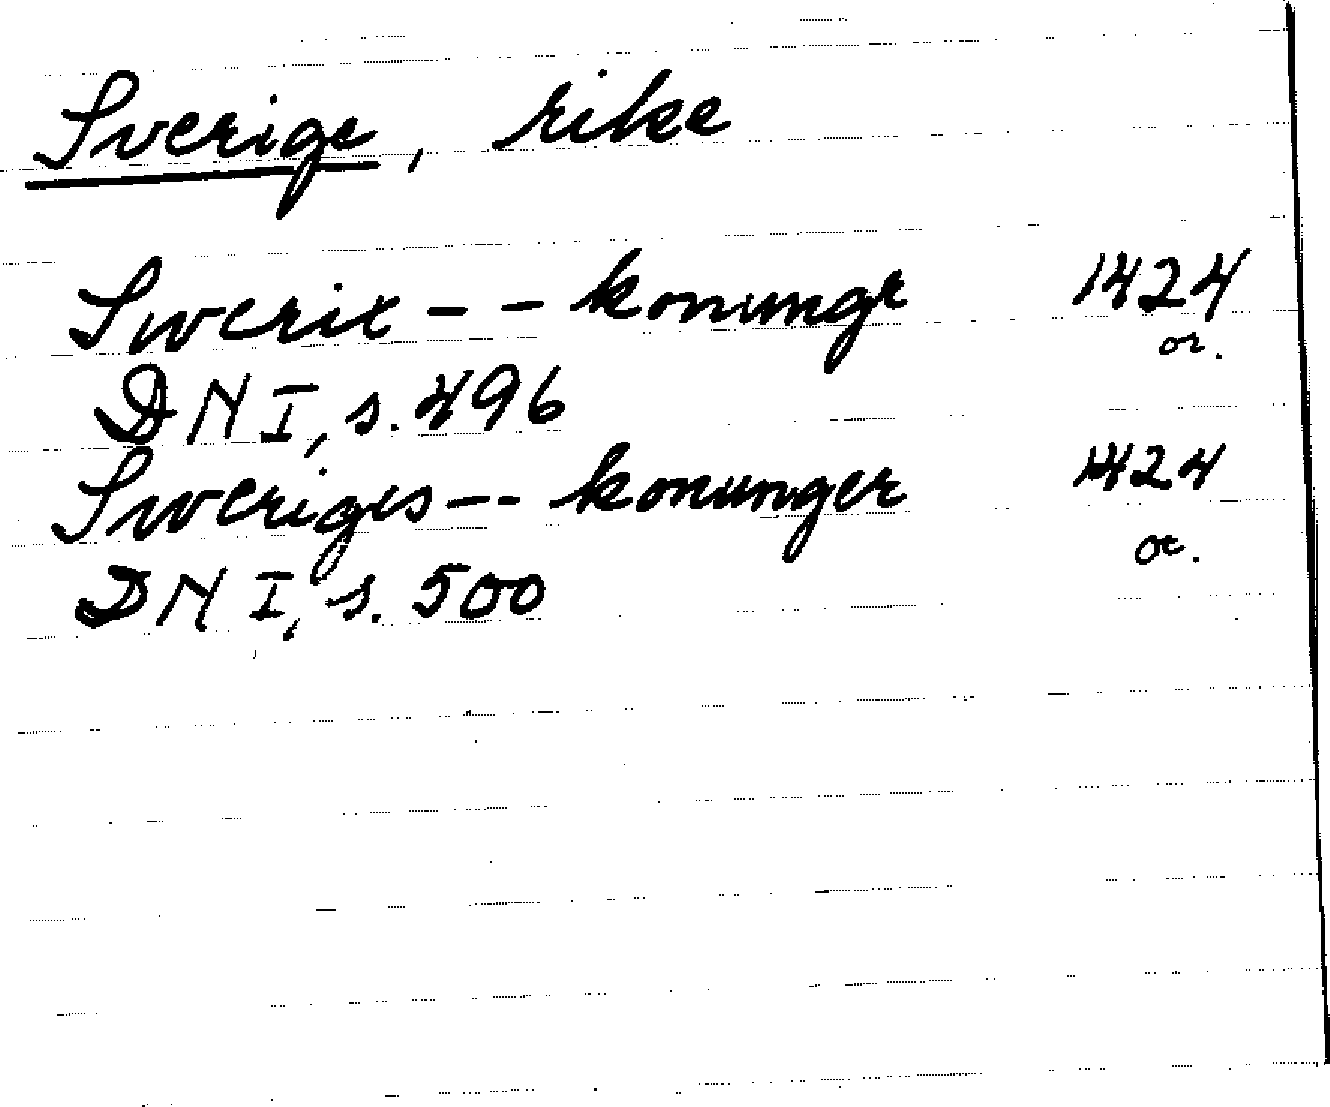 Sverige, rike
Swerix -- konungr 1424
or.
DN I, s. 496
Sweriges -- konunger 1424
or.
DN I, s. 500